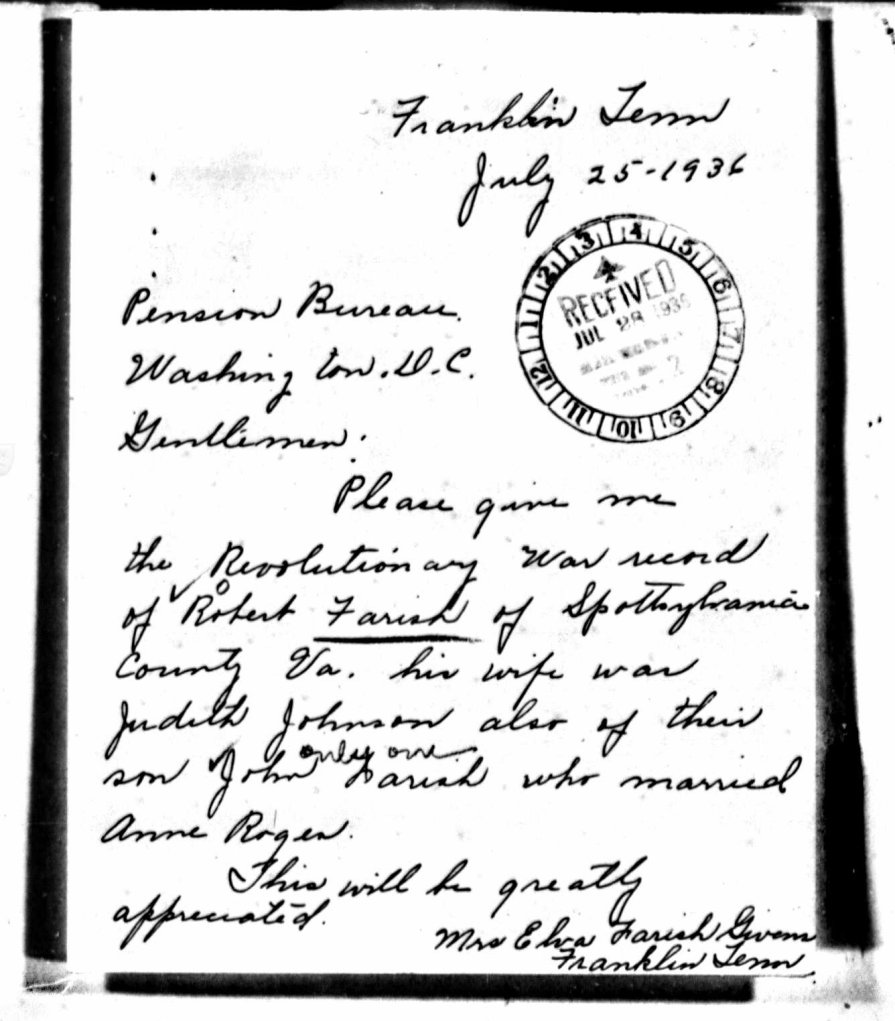 Franklin Tenn
July 25-1936
1 2 3 4 5 6 7 8 9 10 11 12
RECEIVED
JUL 28 1936
Pension Bureau.
Washington. D.C.
Gentlemen:
Please give me
the Revolutionary War record
of Robert Farish of Spottsylvania
County Va. his wife was
Judith Johnson also of their
only one
son John Farish who married
Anne Roger.
This will be greatly
appreciated.
Mrs Elva Farish Givens
Franklin Tenn